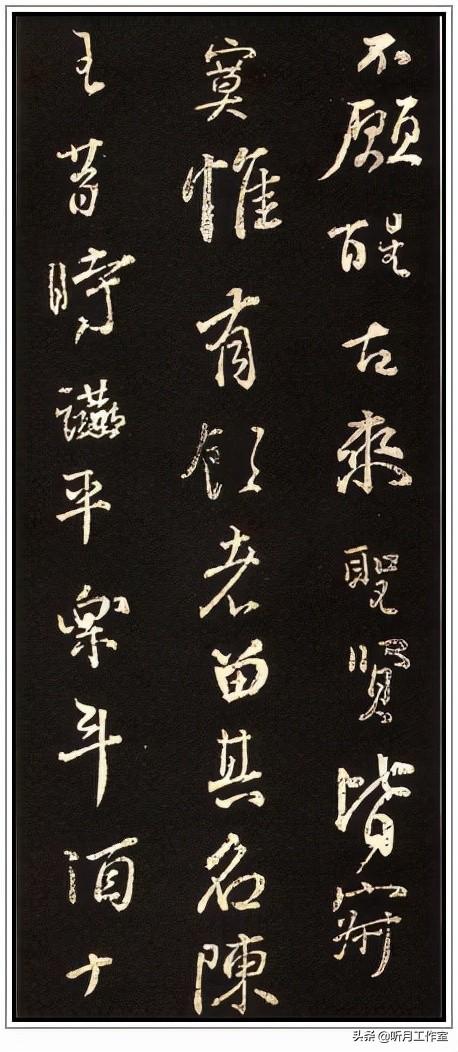 不願醒古來聖賢皆寂
寞惟有飲者留其名陳
王昔時讌平樂斗酒十
头条 @听月工作室